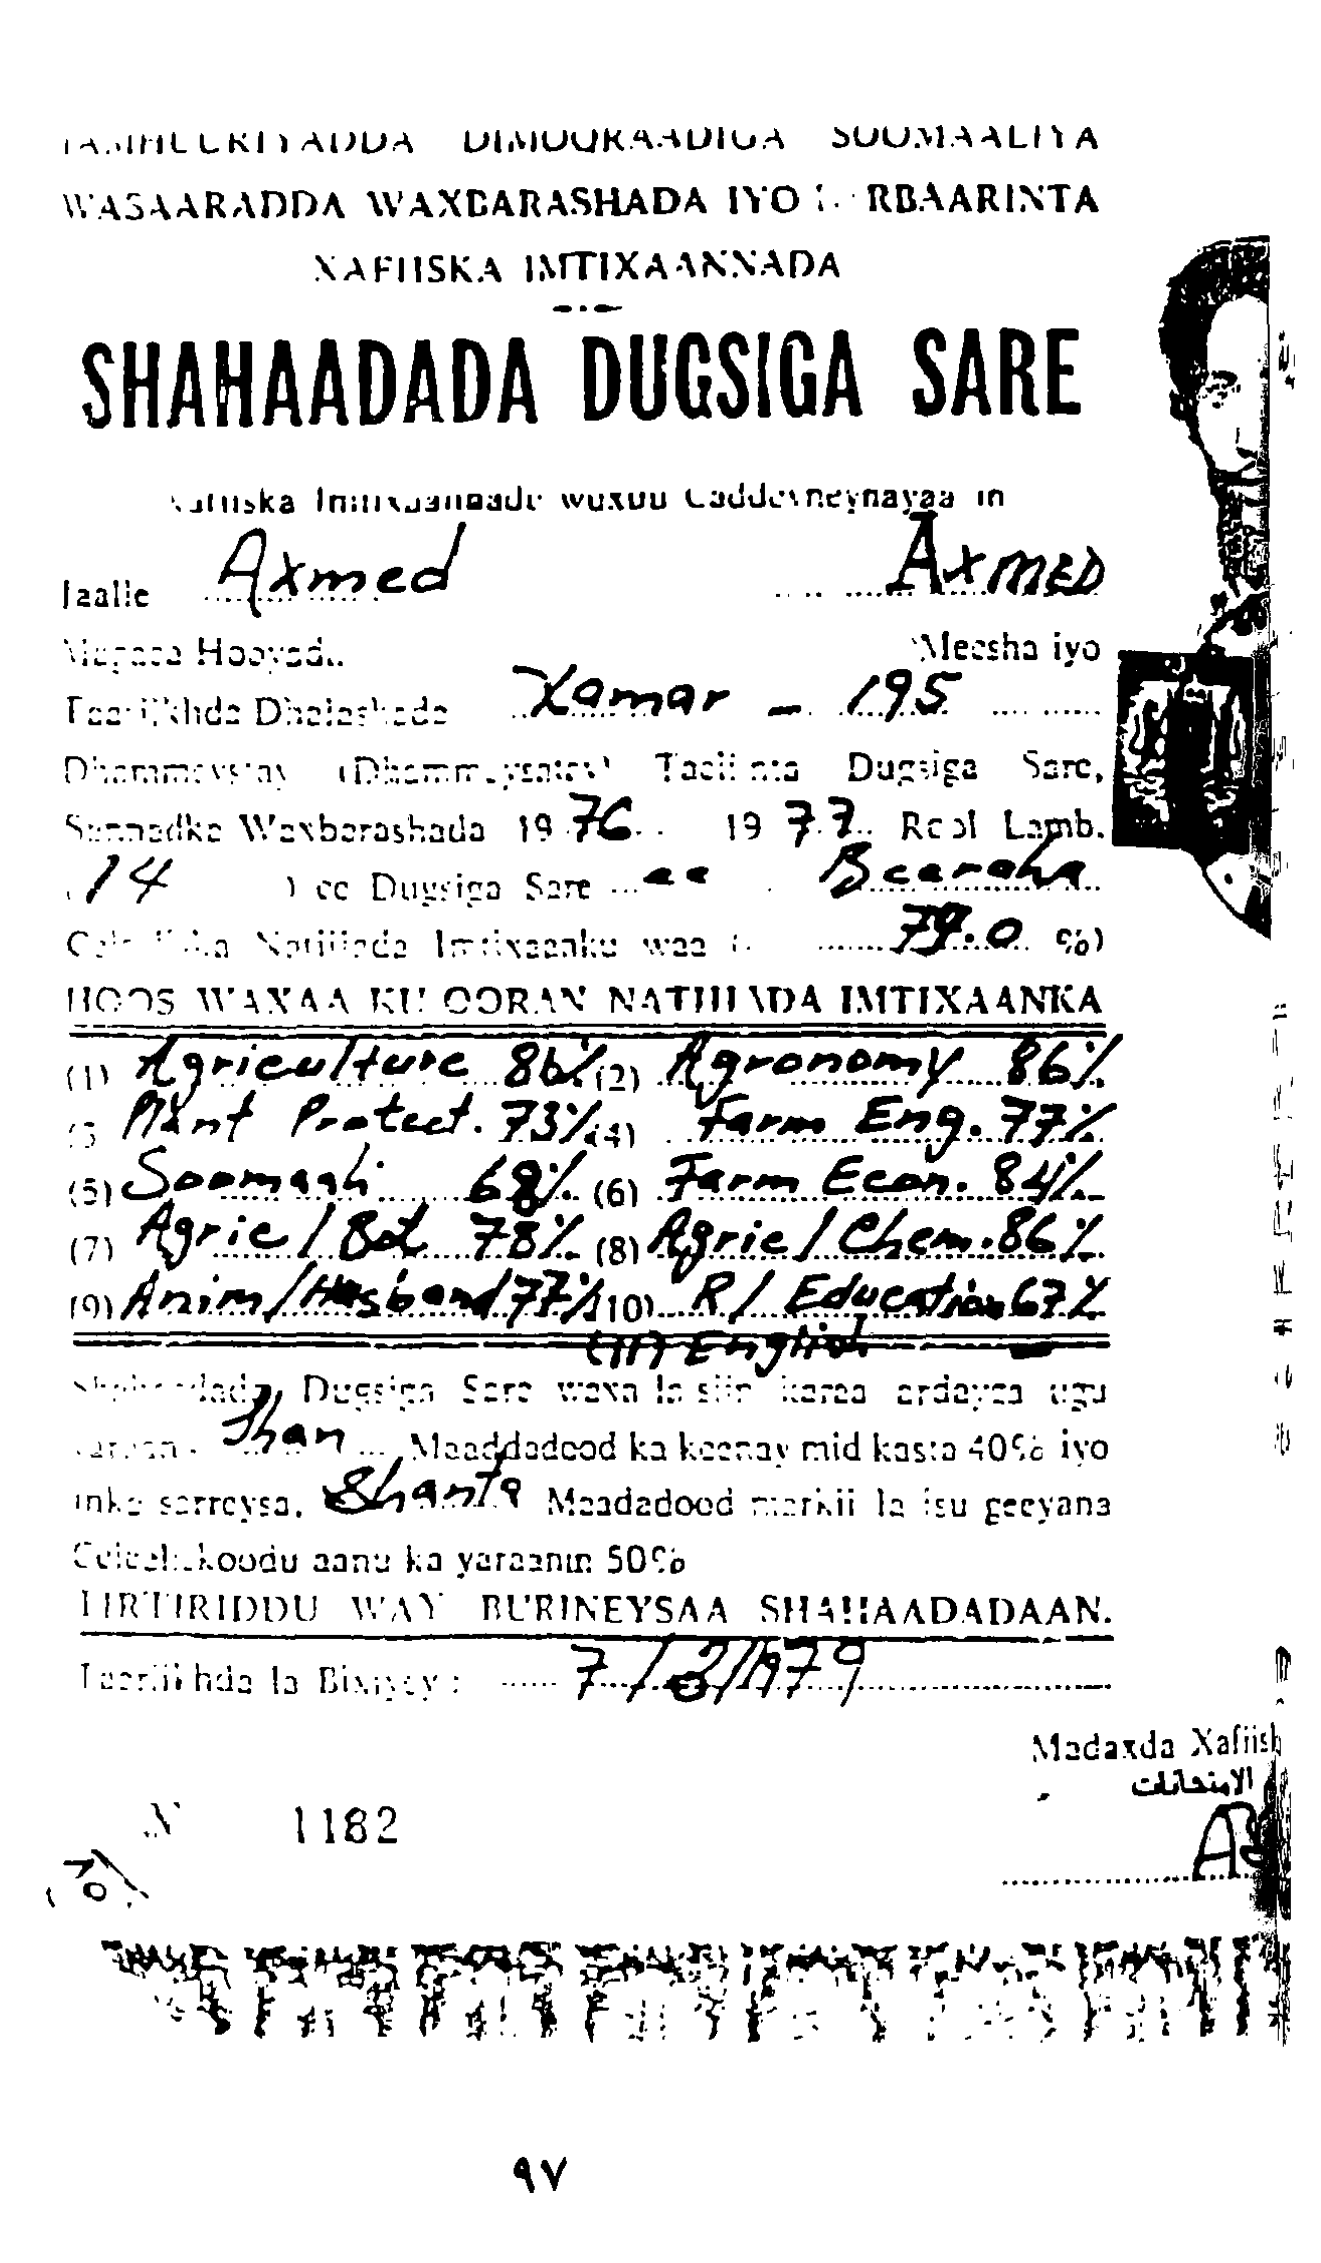 JAMHUURIYADDA DIMOQRAADIGA SOOMAALIYA
WASAARADDA WAXBARASHADA IYO RBAARINTA
XAFIISKA IMTIXAANNADA
SHAHAADADA DUGSIGA SARE
Xafiiska Imtixaannadu wuxuu Caddeyneynayaa in
Jaalle Axmed AxMED
Magaca Hooyada Meesha iyo
Taariikhda Dhalashada Xamar - 195
Dhammeystay (Dhammeysatay) Taclinta Dugsiga Sare,
Sannadka Waxbarashada 19 76 19 77 Rool Lamb.
14 ) ee Dugsiga Sare ee
Natiijada Imtixaanku waa ( 79.0 %)
HOOS WAXAA KU QORAN NATIIJADA IMTIXAANKA
(1) Agriculture 86% (2) Agronomy 86%
Plant Protect. 73% (4) Farm Eng. 77%
(5) Soomaali 68% (6) Farm Econ. 84%
(7) Agric/Bot 78% (8) Agric/Chem. 86%
(9) Anim/Husband 77% (10) R/Education 67%
(11) English
Shahaadada Dugsiga Sare waxa la siin karaa ardayga ugu
Jhan Maaddadood ka keenay mid kasta 40% iyo
inka sarreysa, Shanta Maadadood markii la isu geeyana
Celceliskoodu aanu ka yaraanin 50%
TIRTIRIDDU WAY BURINEYSAA SHAHAADADAAN.
Taariikhda la Bixiyey : 7/3/1979
Madaxda Xafiisk
الامتحانات
N 1182
٩٧